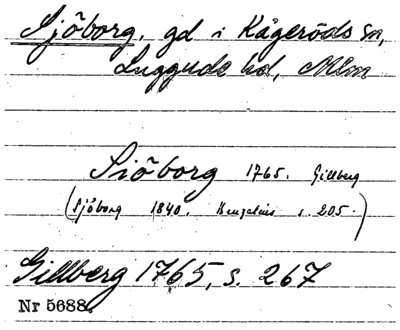 Sjöborg, gd i Kågeröds sn,
Luggude hd, Mlm
Siöborg 1765. Gillberg
(Sjöborg 1840. s. 205.)
Gillberg 1765, s. 267
Nr 5688.